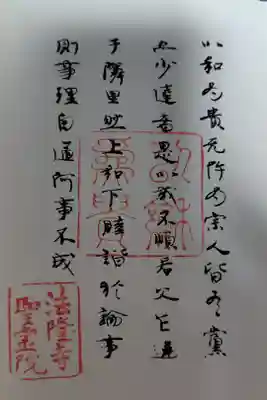 以和为貴无忤为宗人皆有黨
亦少達者是以或不順君父乍違
于隣里然上和下睦諧於論事
則事理自通何事不成
以和
為貴
法隆寺
聖霊院